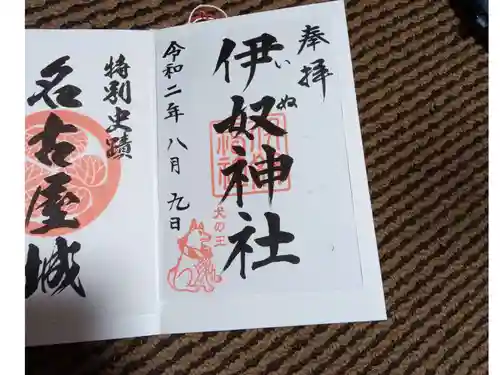 奉拝
伊奴神社
いぬ
犬の王
令和二年八月九日
特別史蹟
名古屋城